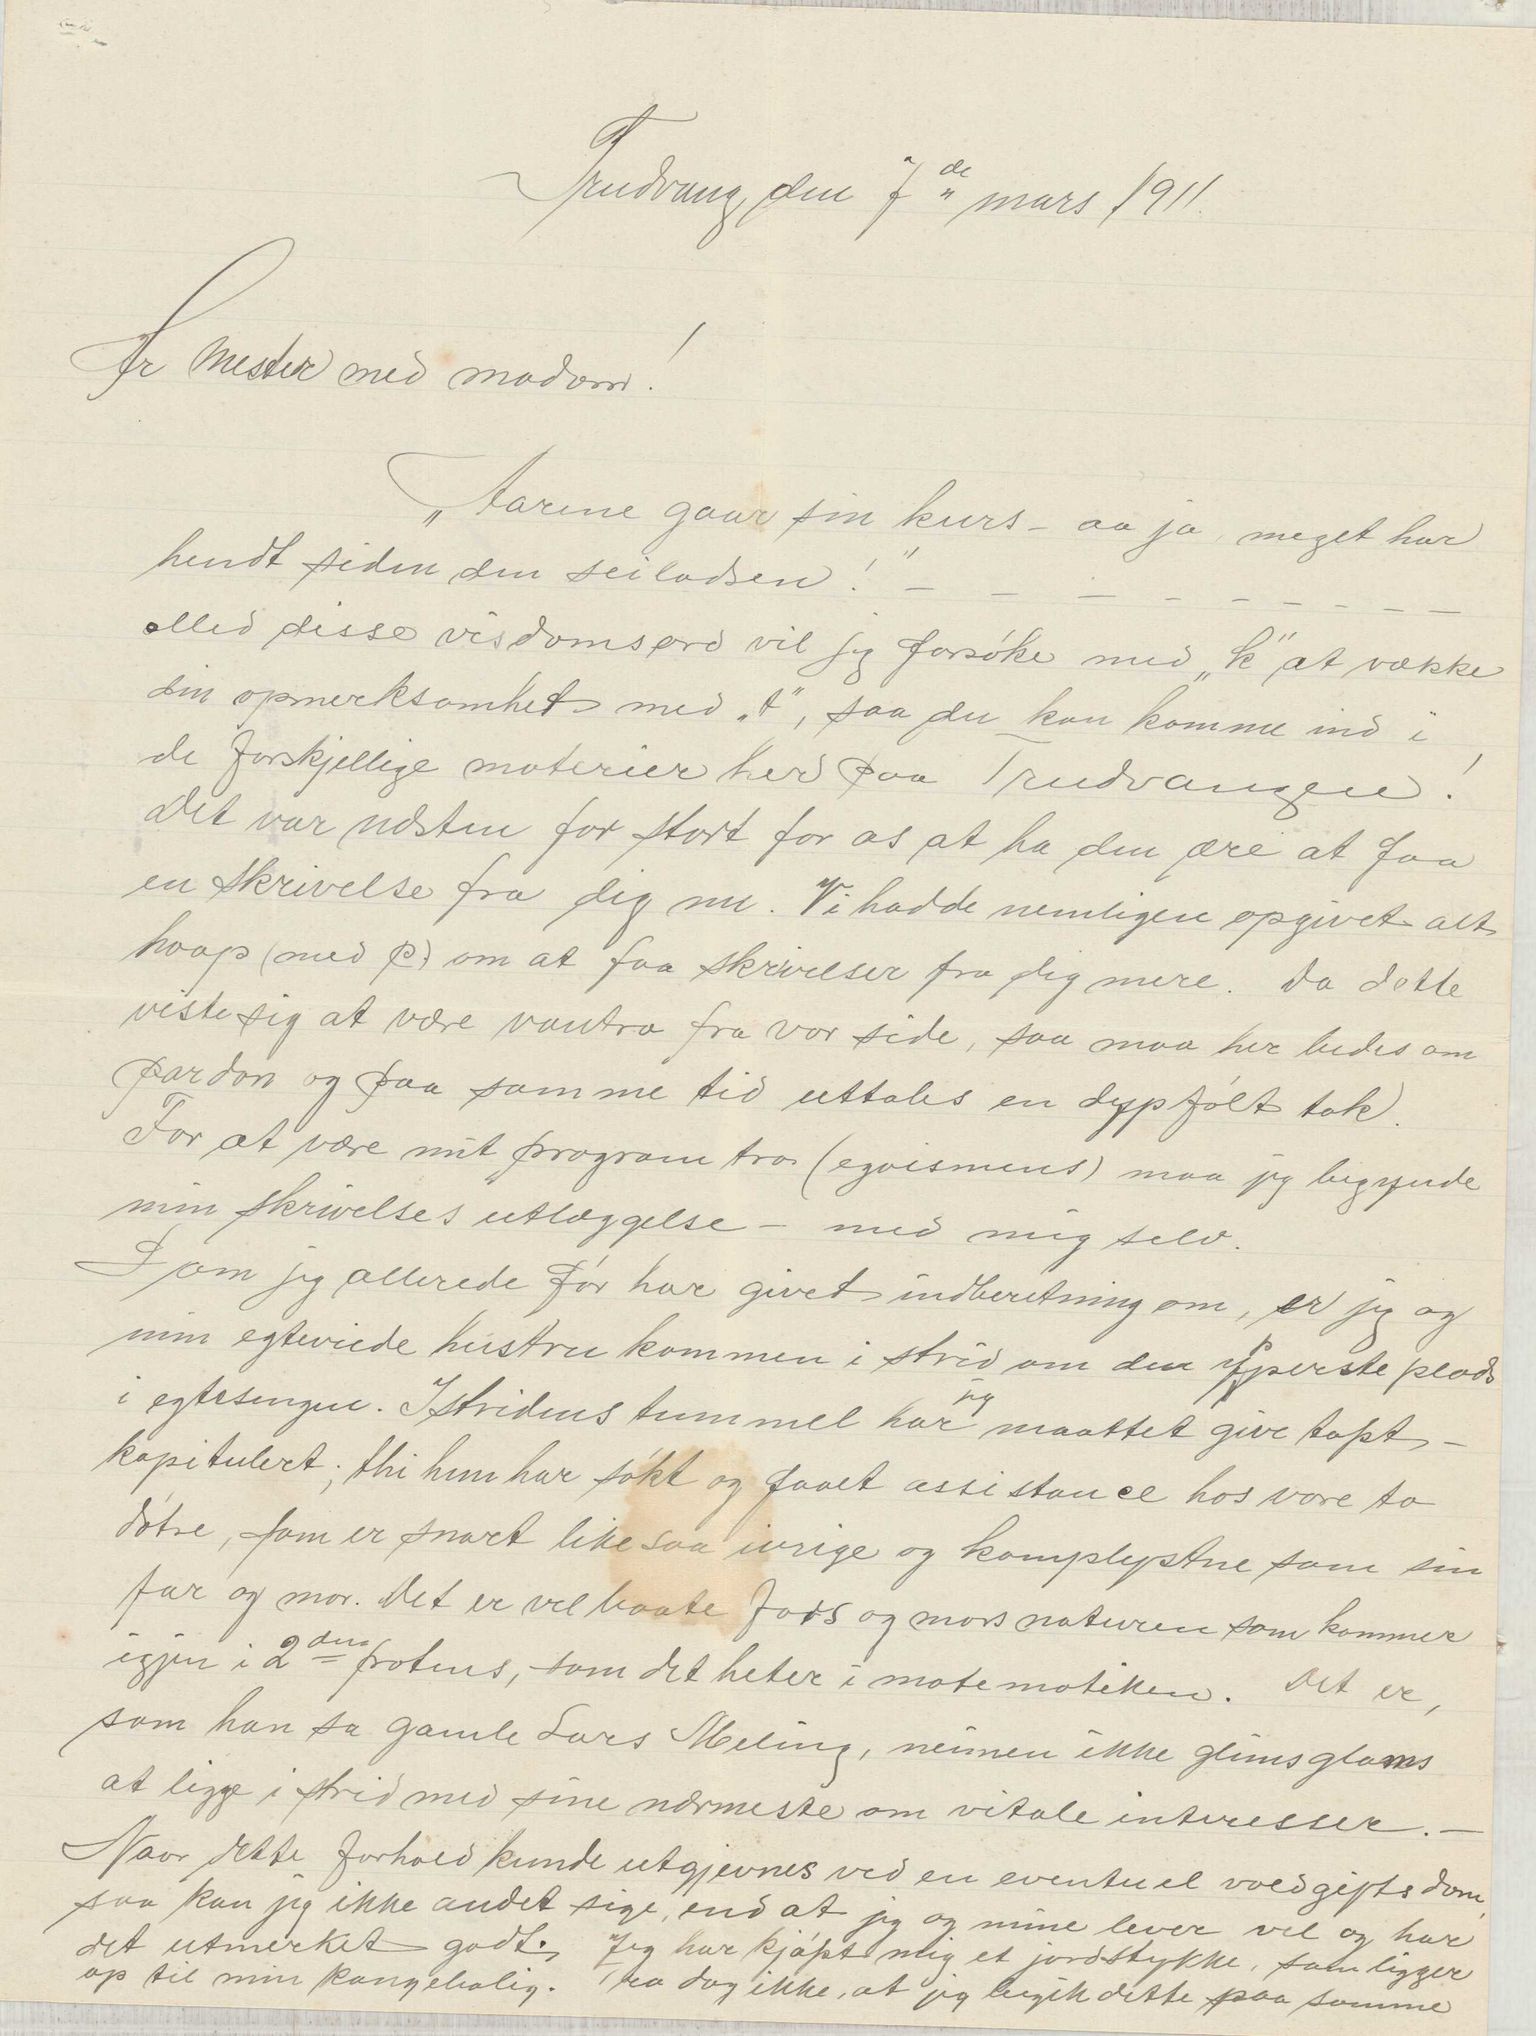 Trudvang, den 7de mars 1911.
Hr Mester med madam!
„Aarene gaar sin kurs – aa ja, meget har
hendt siden den seiladsen!" – – – – – – – – –
Med disse visdomsord vil jeg forsøke med „k" at vække
din opmerksomhet med „t", saa du kan komme ind i
de forskjellige materier her paa Trudvangen!
Det var næsten for stort for os at ha den ære at faa
en skrivelse fra dig nu. Vi hadde nemligen opgivet alt
haap (med p) om at faa skrivelser fra dig mere. Da dette
viste sig at være vantro fra vor side, saa maa her bedes om
pardon og paa samme tid uttales en dypfølt tak.
For at være mit program tro (egoismens) maa jeg begynde
min skrivelses utlæggelse – med mig selv.
Som jeg allerede før har givet indberetning om, er jeg og
min egteviede hustru kommen i strid om den ypperste plads
i egtesengen. I stridens tummel har jeg maattet give tapt –
kapitulert; thi hun har søkt og faaet assistance hos vore to
døtre, som er snart like saa ivrige og kamplystne som sin
far og mor. Det er vel baate fars og mors naturen som kommer
igjen i 2den potens, som det heter i matematiken. Det er,
som han sa gamle Lars Meling, neimen ikke glimsglams
at ligge i strid med sine nærmeste om vitale interesser. –
Naar dette forhold kunde utgjevnes ved en eventuel voldgiftsdom,
saa kan jeg ikke andet sige, end at jeg og mine lever vel og har
det utmerket godt. Jeg har kjøpt mig et jordstykke, som ligger
op til min kongebolig. Tro dog ikke, at jeg begik dette paa samme